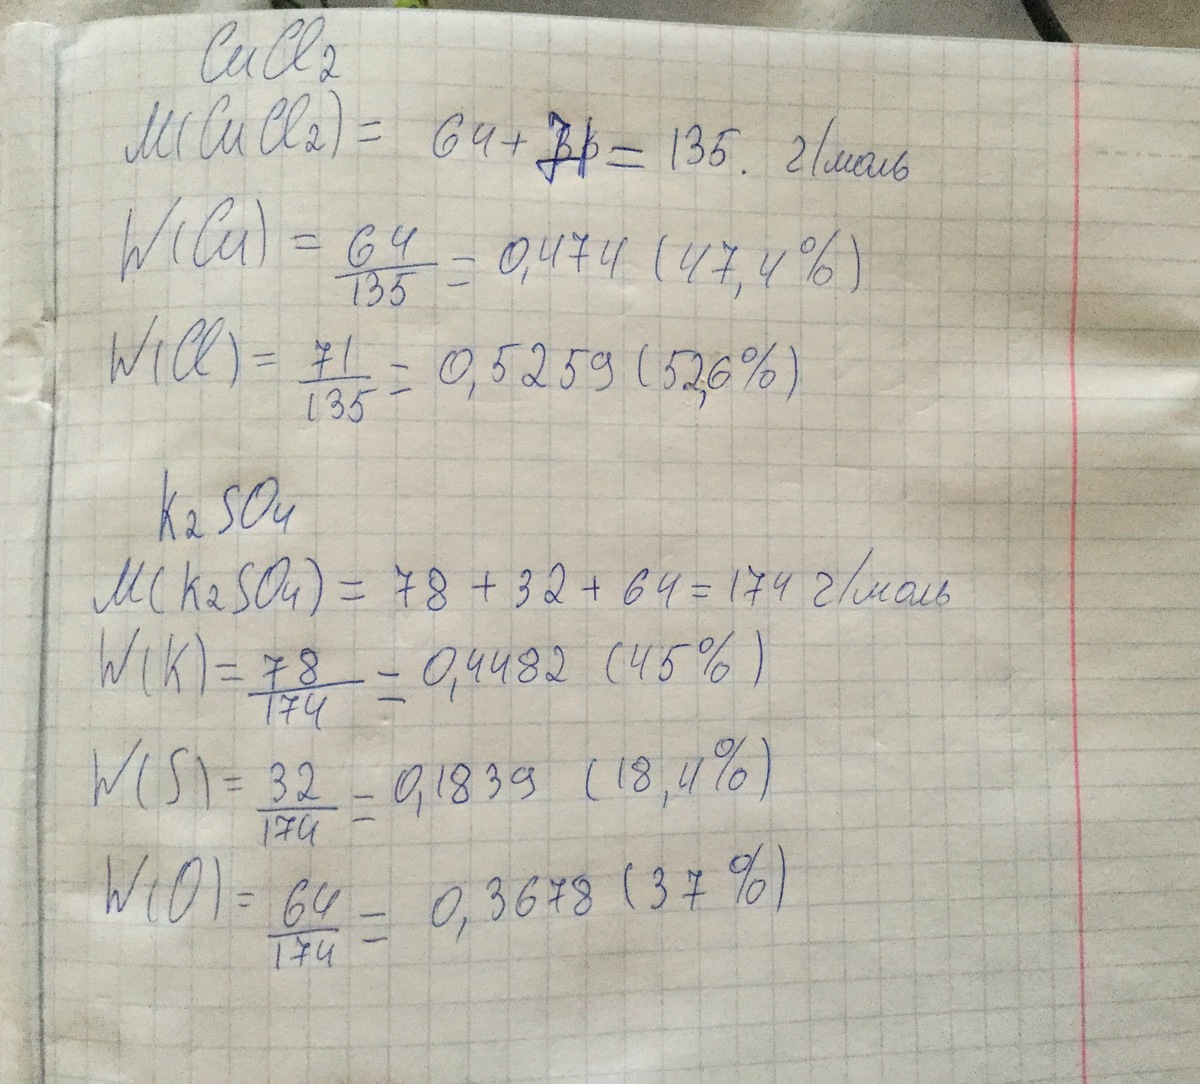 CuCl2
M(CuCl2) = 64 + = 135. г/моль
W(Cu) = 64/135 = 0,474 (47,4%)
W(Cl) = 71/135 = 0,5259 (52,6%)
K2SO4
M(K2SO4) = 78 + 32 + 64 = 174 г/моль
W(K) = 78/174 = 0,4482 (45%)
W(S) = 32/174 = 0,1839 (18,4%)
W(O) = 64/174 = 0,3678 (37%)